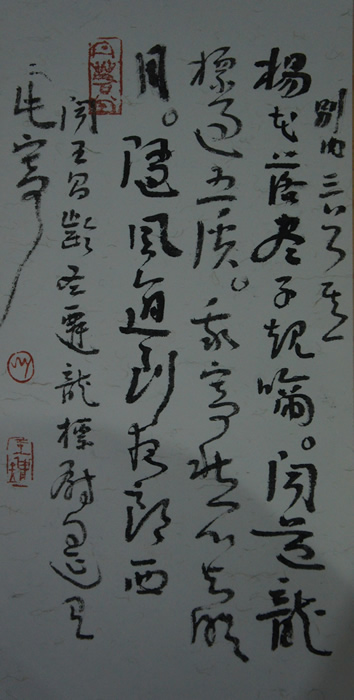 別內
楊花落盡子規啼。聞道龍
標過五溪。我寄愁心與明
月。隨風直到夜郎西
聞王昌齡左遷龍標尉遙有
此寄